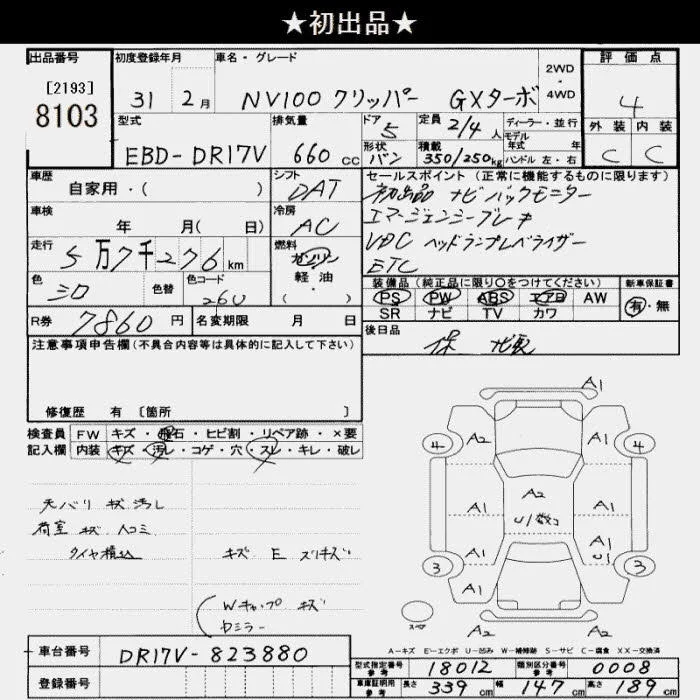 ★初出品★
出品番号
[2193]
8103
初度登録年月
31 2月
車名・グレード
NV100 クリッパー GXターボ
2WD
・
4WD
評価点
4
外装 内装
C C
型式
EBD-DR17V
排気量
660 cc
ドア 5
形状 バン
定員 2/4人
積載 350/250kg
ディーラー・並行
モデル
年式 年
ハンドル 左・右
車歴
自家用・( )
シフト
DAT
車検
年 月( 日)
冷房
AC
走行
5万7千276km
燃料
ガソリン
軽・油
( )
色
シロ
色替
色コード
26U
R券 7860円
名変期限 月 日
セールスポイント (正常に機能するものに限ります)
初出品 ナビ バックモニター
エマージェンシーブレーキ
VDC ヘッドランプレベライザー
ETC
装備品 (純正品に限り○をつけてください)
PS PW ABS エアB AW
SR ナビ TV カワ
新車保証書
有・無
後日品
保 ナビ取
注意事項申告欄 (不具合内容等は具体的に記入して下さい)
修復歴 有 〔箇所 〕
検査員
記入欄
FW キズ・飛石・ヒビ割・リペア跡・×要
内装 キズ・汚レ・コゲ・穴・スレ・キレ・破レ
天バリ キズ 汚レ
荷室 キズ 凹コミ
タイヤ積込
キズ E スリキズ
Wキャップ キズ
Dミラー
A1
A2 A1
4 4
A1 A2 A1
U1数コ
A1
U1
3 3
A1 A1
スペア
A2 A2
A-キズ E-エクボ U-凹み W-補修跡 S-サビ C-腐食 XX-交換済
車台番号 DR17V-823880
登録番号
型式指定番号
参考
18012
類別区分番号
参考
0008
車庫証明用
参考
長さ 339cm 幅 147cm 高さ 189cm